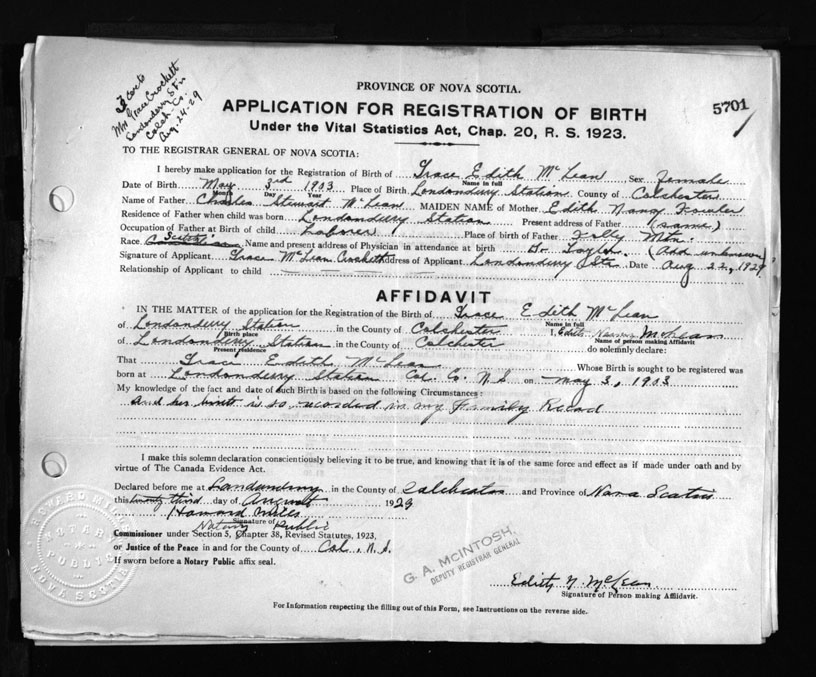 PROVINCE OF NOVA SCOTIA.
5701
APPLICATION FOR REGISTRATION OF BIRTH
Under the Vital Statistics Act, Chap. 20, R. S. 1923.
Mrs Grace Crockett
Londonderry Stn
Colch. Co.
Aug. 24-29
TO THE REGISTRAR GENERAL OF NOVA SCOTIA:
I hereby make application for the Registration of Birth of Grace Edith McLean Sex Female
Name in full
Date of Birth May 3rd 1903 Place of Birth Londonderry Station County of Colchester
Month Day Year
Name of Father Charles Stewart McLean MAIDEN NAME of Mother Edith Nancy Fowler
Residence of Father when child was born Londonderry Station Present address of Father (same)
Occupation of Father at Birth of child Laborer Place of birth of Father Folly Mtn.
Race. Scotch Name and present address of Physician in attendance at birth Dr Taylor. (Add unknown)
Signature of Applicant Grace McLean Crockett Address of Applicant Londonderry Stn Date Aug 22, 1929
Relationship of Applicant to child
AFFIDAVIT
IN THE MATTER of the application for the Registration of the Birth of Grace Edith McLean
Name in full
of Londonderry Station in the County of Colchester I, Edith Nancy McLean
Birth place Name of person making Affidavit
of Londonderry Station in the County of Colchester do solemnly declare:
Present residence
That Grace Edith McLean Whose Birth is sought to be registered was
born at Londonderry Station Col. Co. N.S. on May 3, 1903
My knowledge of the fact and date of such Birth is based on the following Circumstances:
and her birth is so recorded in my Family Record
I make this solemn declaration conscientiously believing it to be true, and knowing that it is of the same force and effect as if made under oath and by
virtue of The Canada Evidence Act.
Declared before me at Londonderry in the County of Colchester and Province of Nova Scotia
this twenty third day of August 1929
Howard Miles
Signature of
Notary Public
Commissioner under Section 5, Chapter 38, Revised Statutes, 1923,
or Justice of the Peace in and for the County of Col. N.S.
If sworn before a Notary Public affix seal.
HOWARD MILES
NOTARY PUBLIC
NOVA SCOTIA
G. A. MCINTOSH,
DEPUTY REGISTRAR GENERAL
Edith N. McLean
Signature of Person making Affidavit.
For Information respecting the filling out of this Form, see Instructions on the reverse side.